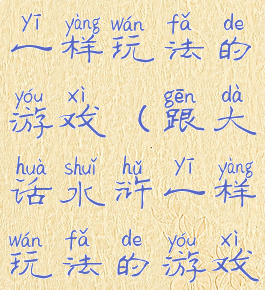 yī yàng wán fǎ de
一样玩法的
yóu xì gēn dà
游戏（跟大
huà shuǐ hǔ yī yàng
话水浒一样
wán fǎ de yóu xì
玩法的游戏